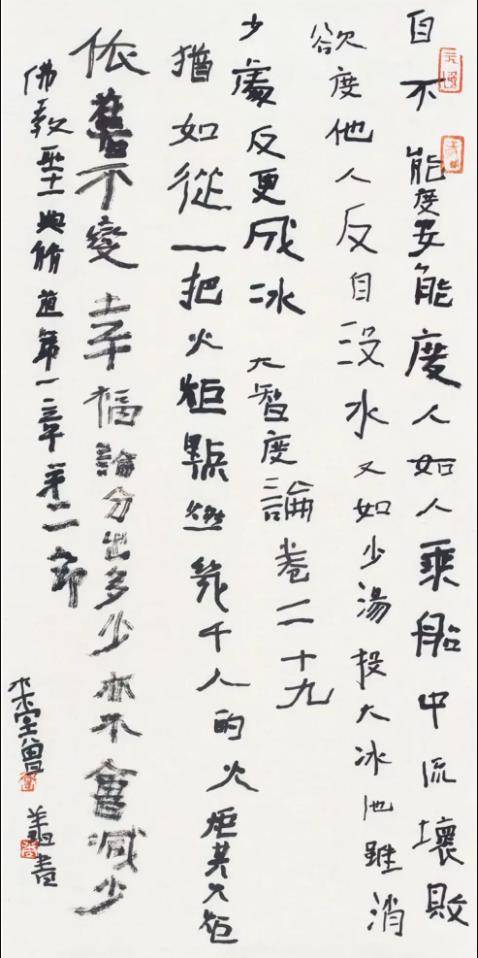 自不能度安能度人如人乘船中流壞敗
欲度他人反自没水又如少湯投大冰池雖消
少處反更成冰 大智度論卷二十九
猶如從一把火炬點燃幾千人的火炬其火炬
依舊不變幸福論分出多少亦不會減少
佛教聖典修道第一章第二節
木堂曾翔書